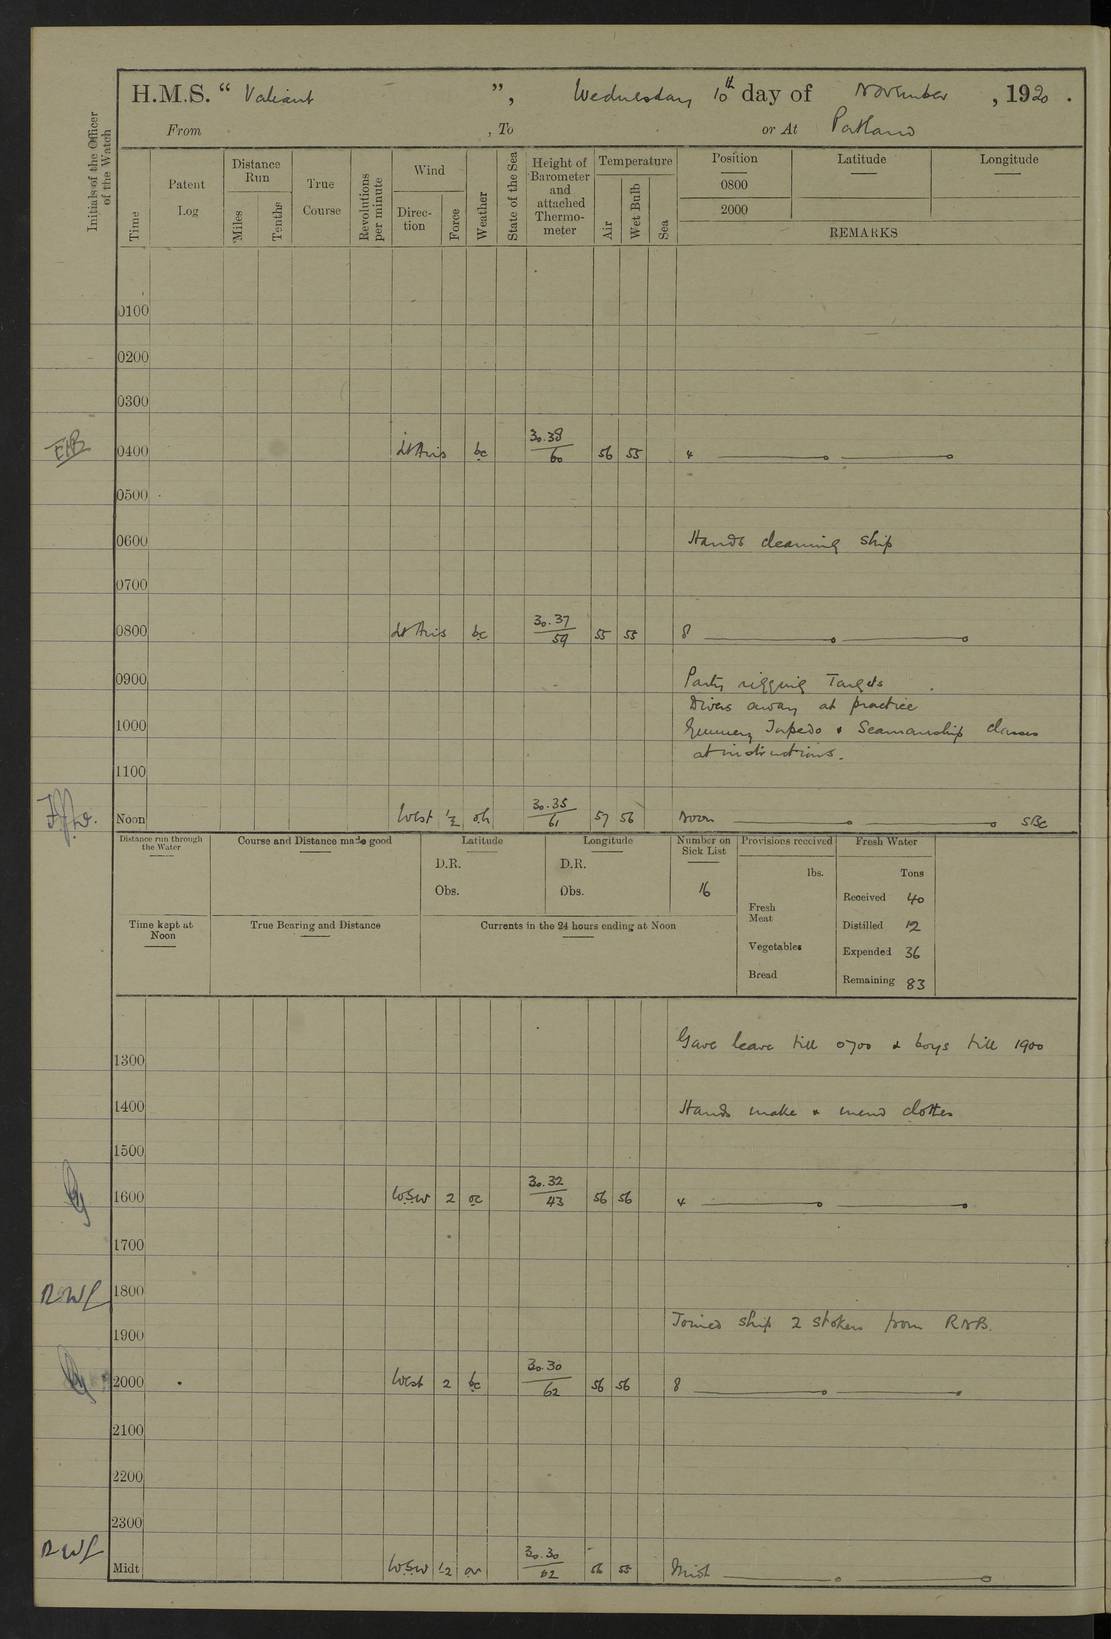 H.M.S. “ Valiant ”, Wednesday 10th day of November , 1920 .
From , To or At Portland
Initials of the Officer of the Watch
Time
Patent Log
Distance Run
Miles
Tenths
True Course
Revolutions per minute
Wind
Direc-tion
Force
Weather
State of the Sea
Height of Barometer and attached Thermo-meter
Temperature
Air
Wet Bulb
Sea
Position Latitude Longitude
0800
2000
REMARKS
0100
0200
0300
EHB 0400 Lt Airs bc 30.38/60 56 55 4
0500
0600 Hands cleaning ship
0700
0800 Lt Airs bc 30.37/59 55 55 8
0900 Party rigging Targets
Divers away at practice
1000 Gunnery Torpedo & Seamanship classes
at instructions.
1100
Noon West 1/2 30.35/61 57 56 Noon SBC
Distance run through the Water
Course and Distance made good
Latitude
D.R.
Obs.
Longitude
D.R.
Obs.
Number on Sick List
16
Provisions received
lbs.
Fresh Meat
Vegetables
Bread
Fresh Water
Tons
Received 40
Distilled 12
Expended 36
Remaining 83
Time kept at Noon
True Bearing and Distance
Currents in the 24 hours ending at Noon
Gave leave till 0700 & boys till 1900
1300
1400 Hands make & mend clothes
1500
1600 WSW 2 oc 30.32/43 56 56 4
1700
1800
Joined ship 2 stokers from RNB.
1900
2000 West 2 bc 30.30/62 56 56 8
2100
2200
2300
Midt WSW 1-2 30.30/62 56 55 Midt